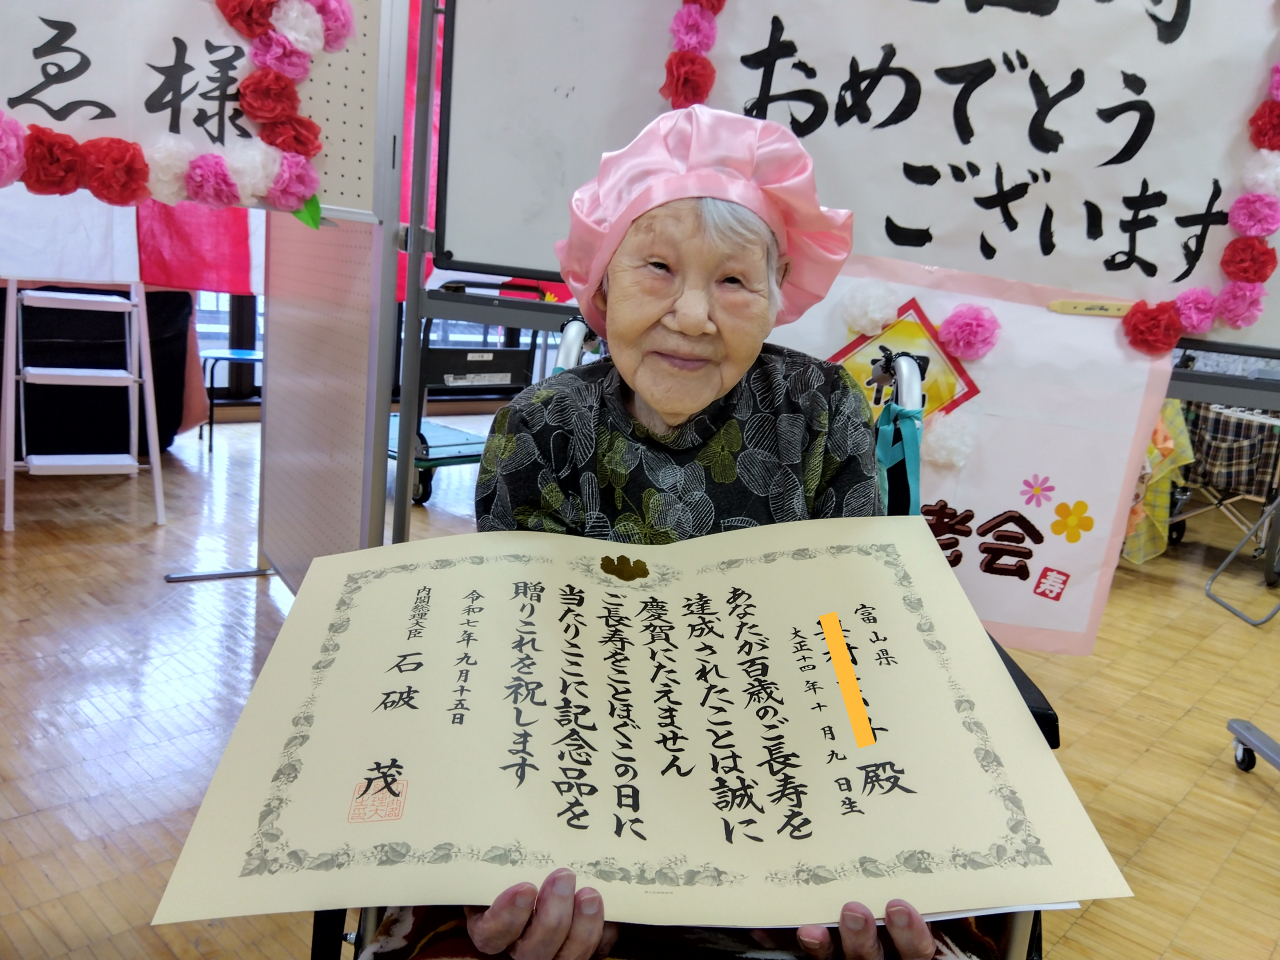 ゑ様
おめでとう
ございます
祝
老会
寿
富山県
殿
大正十四年十月九日生
あなたが百歳のご長寿を
達成されたことは誠に
慶賀にたえません
ご長寿をことほぐこの日に
当たりここに記念品を
贈りこれを祝します
令和七年九月十五日
内閣総理大臣 石破 茂